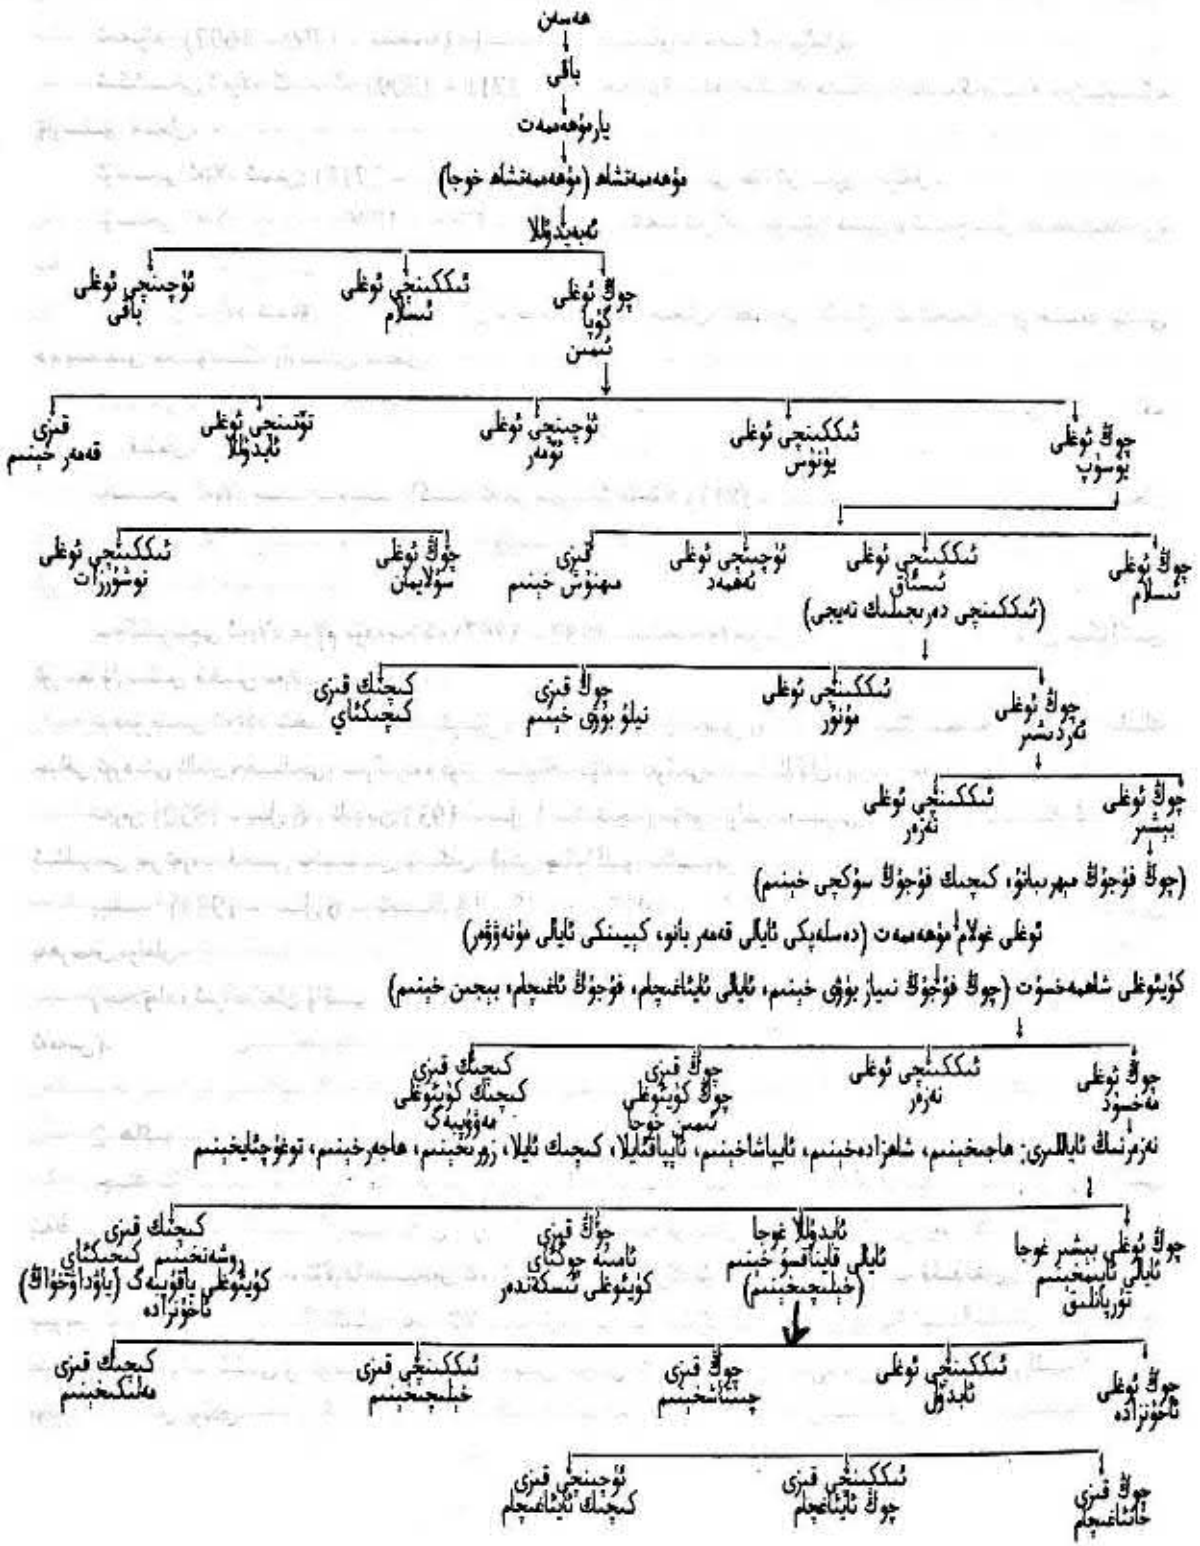 ھەسەن
باقى
يارمۇھەممەت
مۇھەممەتشاھ (مۇھەممەتشاھ خوجا)
ئەبەيدۇللا
چوڭ ئوغلى
كۇپا
ئىمىن
ئىككىنچى ئوغلى
ئىسلام
ئۈچىنچى ئوغلى
باقى
چوڭ ئوغلى
يۈسۈپ
ئىككىنچى ئوغلى
يۇنۇس
ئۈچىنچى ئوغلى
ئۆمەر
تۆتىنچى ئوغلى
ئابدۇللا
قىزى
قەمەر خېنىم
چوڭ ئوغلى
ئىسلام
ئىككىنچى ئوغلى
ئىسئاق
(ئىككىنچى دەرىجىلىك تەيجى)
ئۈچىنچى ئوغلى
ئەھمەد
قىزى
مىھنۇش خېنىم
چوڭ ئوغلى
سۇلايمان
ئىككىنچى ئوغلى
نوشۇرۋات
چوڭ ئوغلى
ئەردىشىر
ئىككىنچى ئوغلى
مۇنۇر
چوڭ قىزى
نىلۇ بۇۋى خېنىم
كىچىك قىزى
كىچىكئاي
چوڭ ئوغلى
بېشىر
ئىككىنچى ئوغلى
نەزەر
(چوڭ فۇجۇڭ مىھرىبانۇ، كىچىك فۇجۇڭ سۇكچى خېنىم)
ئوغلى غولام مۇھەممەت (دەسلەپكى ئايالى قەمەر بانو، كېيىنكى ئايالى مۇنەۋۋەر)
كۈيئوغلى شاھمەخسۇت (چوڭ فۇجۇڭ نىياز بۇۋى خېنىم، ئايالى ئايئاغىچام، فۇجۇڭ ئاغىچام، بېجىن خېنىم)
چوڭ ئوغلى
مەخسۇد
ئىككىنچى ئوغلى
نەزەر
چوڭ قىزى
چوڭ كۈيئوغلى
ئىمىن خوجا
كىچىك قىزى
كىچىك كۈيئوغلى
مەۋۇپبەگ
نەزەرنىڭ ئاياللىرى: ھاجىخېنىم، شاھزادەخېنىم، ئايپاشاخېنىم، ئايپاقئايلا، كىچىك ئايلا، زورىخېنىم، ھاجەرخېنىم، توغۇچئايخېنىم
چوڭ ئوغلى بېشىر غوجا
ئايالى ئايىمخېنىم
تۇرپانلىق
ئابدۇللا غوجا
ئايالى قايناقسۇ خېنىم
(خېلىچىخېنىم)
چوڭ قىزى
ئامىنە چوڭئاي
كۈيئوغلى ئىسكەندەر
كىچىك قىزى
روشەنخېنىم كىچىكئاي
كۈيئوغلى ياقۇپبەگ (ياۋداۋخۇاڭ)
ئاخۇنزادە
چوڭ ئوغلى
ئاخۇنزادە
ئىككىنچى ئوغلى
ئابدۇل
چوڭ قىزى
چىنتاشخېنىم
ئىككىنچى قىزى
خېلىچىخېنىم
كىچىك قىزى
مەلىكىخېنىم
چوڭ قىزى
خانئاغىچام
ئىككىنچى قىزى
چوڭ ئايئاغىچام
ئۈچىنچى قىزى
كىچىك ئايئاغىچام